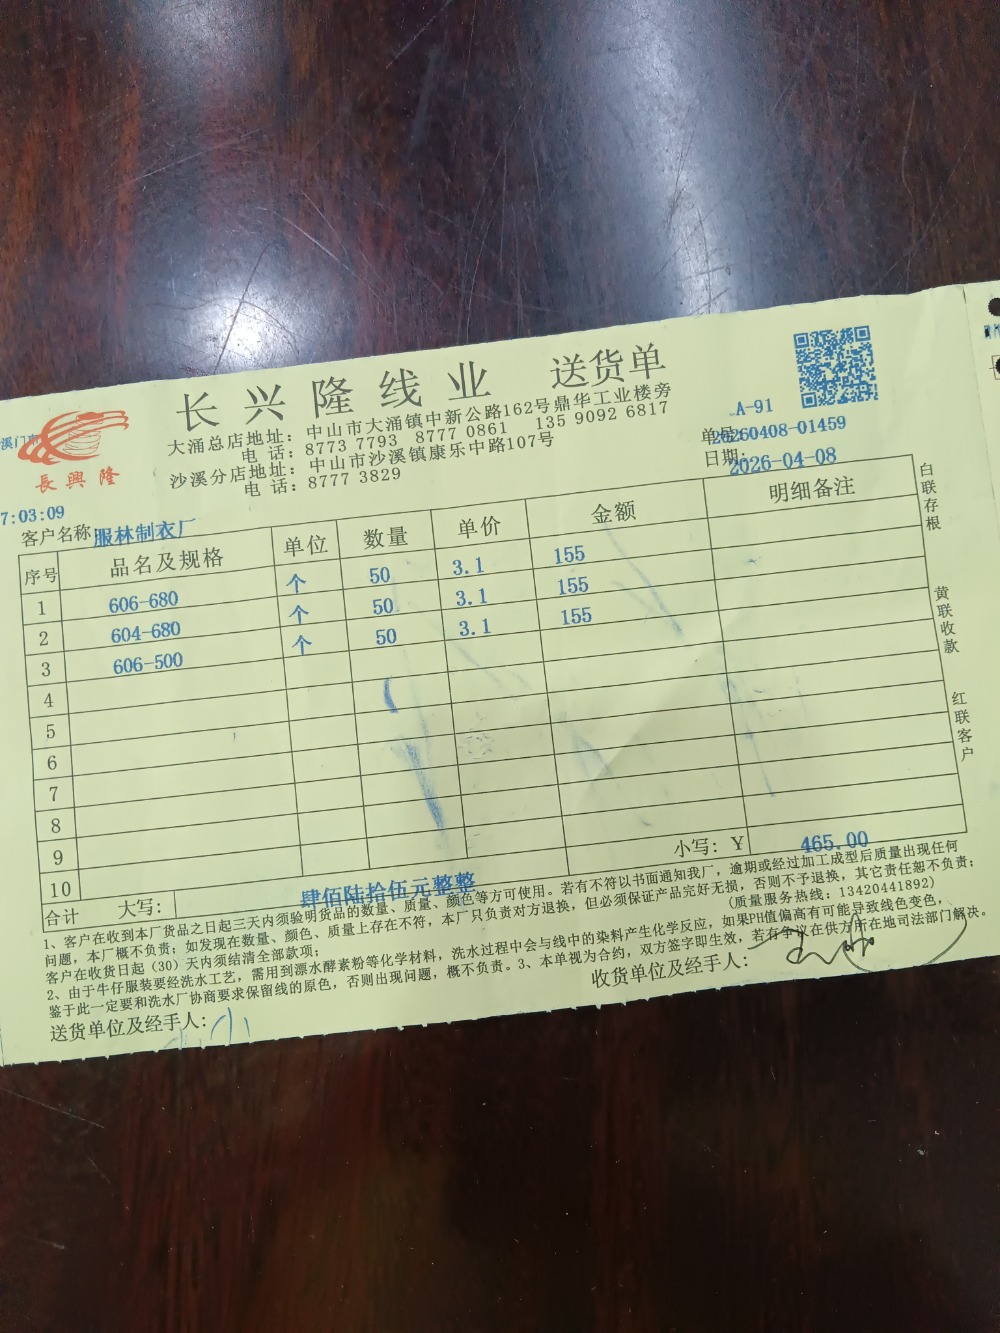 长兴隆线业 送货单
大涌总店地址：中山市大涌镇中新公路162号鼎华工业楼旁
电 话：8773 7793 8777 0861 135 9092 6817
沙溪分店地址：中山市沙溪镇康乐中路107号
电 话：8777 3829
長興隆
溪门市
A-91
单号：20260408-01459
日期：2026-04-08
7:03:09
客户名称 服林制衣厂
序号 品名及规格 单位 数量 单价 金额 明细备注
1 606-680 个 50 3.1 155
2 604-680 个 50 3.1 155
3 606-500 个 50 3.1 155
4
5
6
7
8
9
10
合计 大写： 肆佰陆拾伍元整整 小写：￥ 465.00
白联存根
黄联收款
红联客户
1、客户在收到本厂货品之日起三天内须验明货品的数量、质量、颜色等方可使用。若有不符以书面通知我厂，逾期或经过加工成型后质量出现任何
问题，本厂概不负责；如发现在数量、颜色、质量上存在不符，本厂只负责对方退换，但必须保证产品完好无损，否则不予退换，其它责任恕不负责；
客户在收货日起（30）天内须结清全部款项； （质量服务热线：13420441892）
2、由于牛仔服装要经洗水工艺，需用到漂水酵素粉等化学材料，洗水过程中会与线中的染料产生化学反应，如果PH值偏高有可能导致线色变色，
鉴于此一定要和洗水厂协商要求保留线的原色，否则出现问题，概不负责。3、本单视为合约，双方签字即生效，若有争议在供方所在地司法部门解决。
送货单位及经手人： 收货单位及经手人：